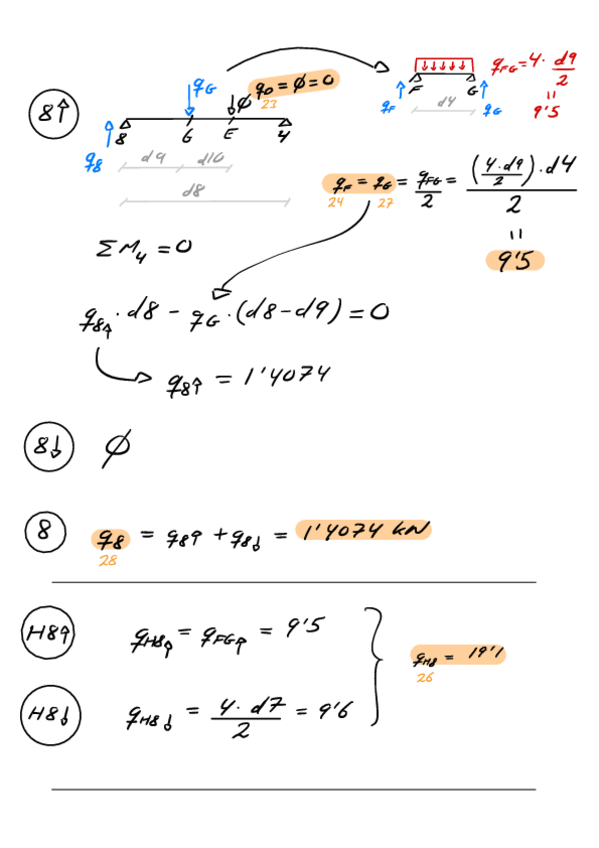 8↑
q8
qG
q0 = ϕ = 0
23
ϕ
8 G E 4
d9 d10
d8
F G
qF d4 qG
qFG = 4 · d9/2
=
9'5
qF = qG = qFG/2 = ((4·d9/2)·d4)/2
24 27
=
9'5
ΣM4 = 0
q8↑ · d8 - qG · (d8-d9) = 0
q8↑ = 1'4074
8↓ ϕ
8 q8 = q8↑ + q8↓ = 1'4074 kN
28
H8↑ qH8↑ = qFG↑ = 9'5
qH8 = 19'1
26
H8↓ qH8↓ = 4 · d7/2 = 9'6